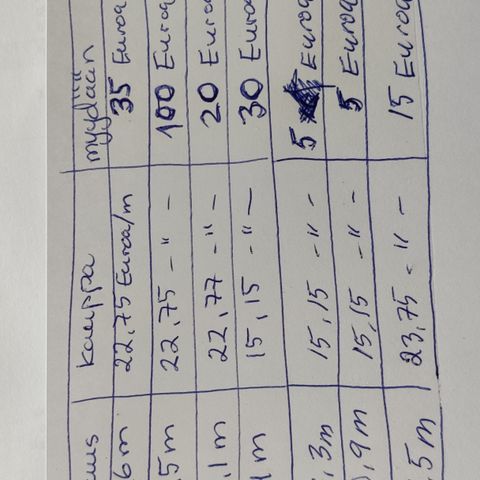 uus kauppa myydään
6m 22,75 Euroa/m 35 Euroa
5m 22,75 -"- 100 Euroa
,1m 22,77 -"- 20 Euroa
1m 15,15 -"- 30 Euroa
,3m 15,15 -"- 5 Euroa
,9m 15,15 -"- 5 Euroa
,5m 23,75 -"- 15 Euroa